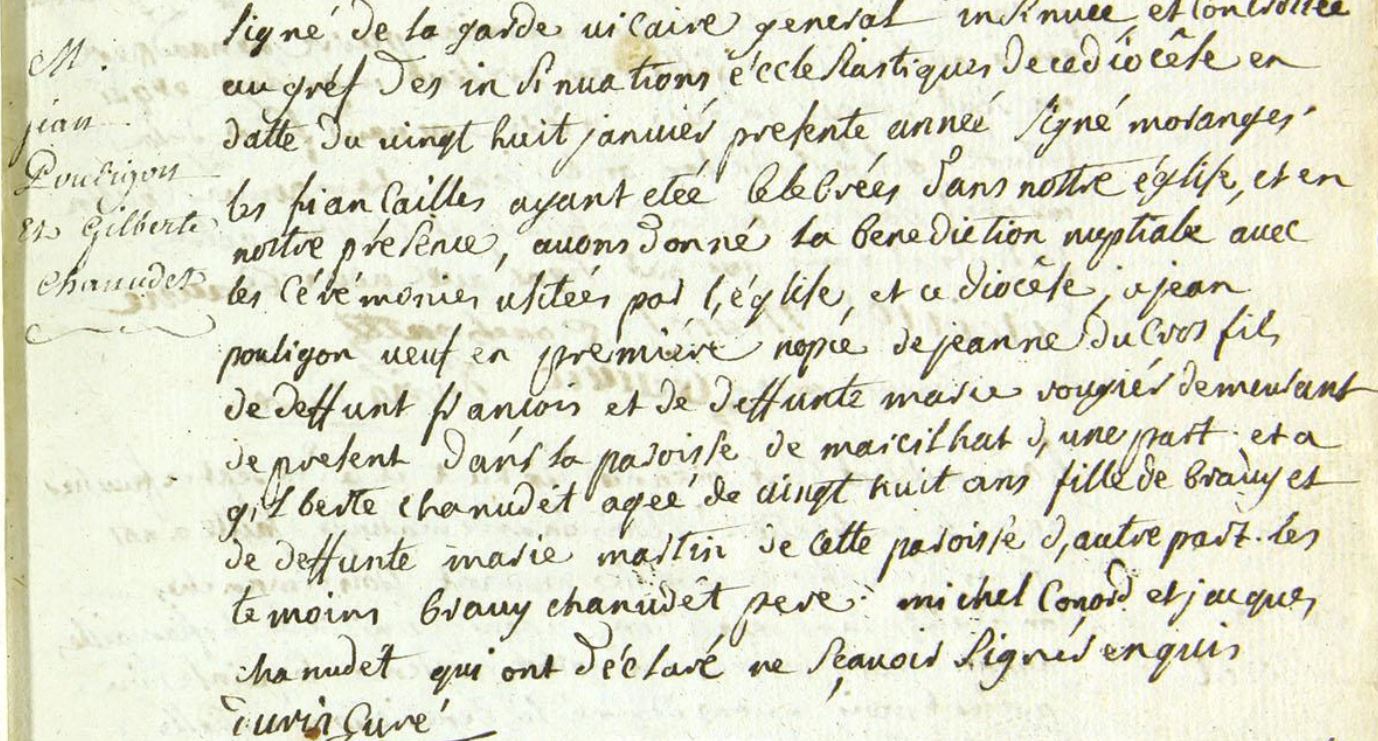 M.
jean
Pouligon
Et Gilberte
Chanudet
signé de la garde vicaire general insinuée et controllée
au gréf des insinuations éccleslastiques de ce diocêse en
datte du vingt huit janviér presente année signé moranges
les fiancailles ayant etéé celebrées dans nottre église, et en
nottre présence, avons donné la benediction nuptiale avec
les cérémonies usitées par l,église, et ce diocêse, a jean
pouligon veuf en premiére nopce de jeanne du cros fils
de deffunt francois et de deffunte marie rougiér demeurant
de present dans la paroisse de marcilhat d,une part. et a
gilberte chanudet ageé de vingt huit ans fille de brauy et
de deffunte marie martin de cette paroisse d,autre part. les
temoins brauy chanudêt pere. michel Conord et jacques
chanudet qui ont déclaré ne sçavoir signér enquis
curé